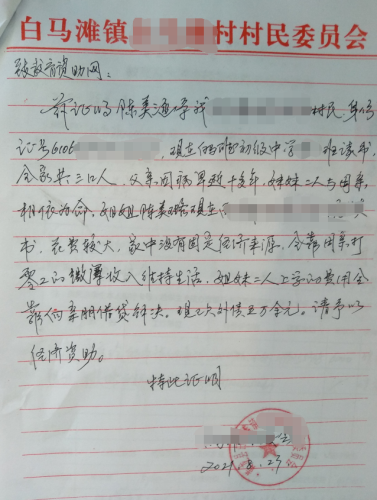 白马滩镇 村村民委员会
致教育资助网：
兹证明陈美 系我 村民，身份
证号6106 ，现在 初级中学 班读书，
全家共三口人，父亲因病早逝十多年，姊妹二人与母亲
相依为命，姐姐陈美 现在
书，花费较大，家中没有固定经济来源，全靠母亲打
零工的微薄收入维持生活，姐妹二人上学的费用全
靠向亲朋借贷解决。现已欠外债五万余元。请予以
经济资助。
特此证明
2021.8.27